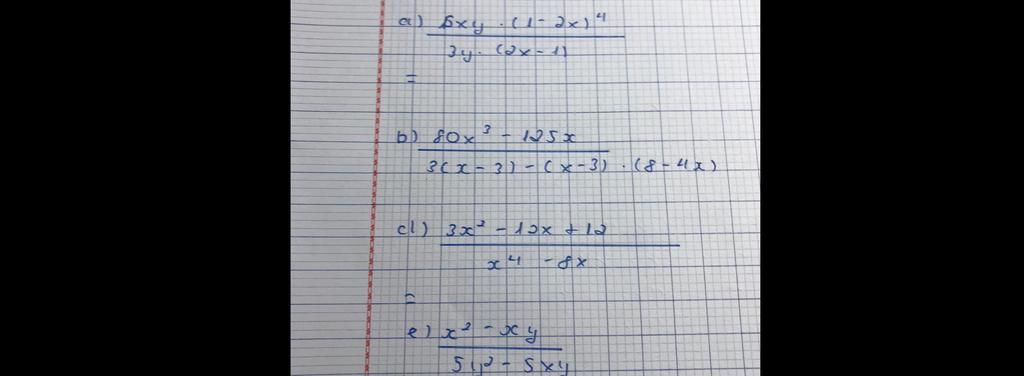 a) 5xy · (1 - 2x)⁴
3y · (2x - 1)
=
b) 80x³ - 125x
3(x - 3) - (x - 3) · (8 - 4x)
d) 3x² - 12x + 12
x⁴ - 8x
=
e) x² - xy
5y² - 5xy